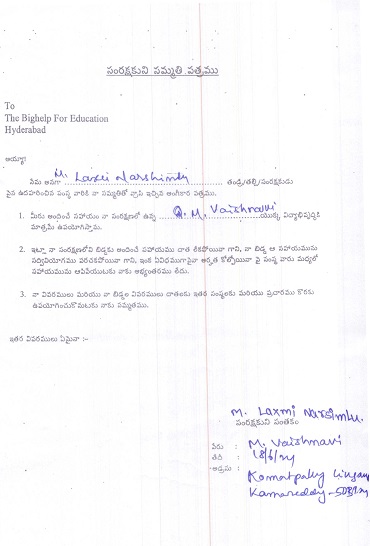 సంరక్షకుని సమ్మతి పత్రము
To
The Bighelp For Education
Hyderabad
అయ్యా!
నేను అనగా M. Laxmi Narshimlu తండ్రి/తల్లి/సంరక్షకుడు
పైన ఉదహరించిన సంస్థ వారికి నా సమ్మతితో వ్రాసి ఇచ్చిన అంగీకార పత్రము.
1. మీరు అందించే సహాయం నా సంరక్షణలో ఉన్న M. Vaishnavi యొక్క విద్యాభివృద్ధికి
మాత్రమే ఉపయోగిస్తాను.
2. ఇట్లా నా సంరక్షణలోని బిడ్డకు అందించే సహాయము దాత లేకపోయినా గాని, నా బిడ్డ ఆ సహాయమును
సద్వినియోగము పరచకపోయినా గాని, ఇంక ఏవిధముగానైనా అర్హత కోల్పోయినా పై సంస్థ వారు మధ్యలో
సహాయమును ఆపివేయుటకు నాకు అభ్యంతరము లేదు.
3. నా వివరములు మరియు నా బిడ్డల వివరములు దాతలకు ఇతర సంస్థలకు మరియు ప్రచారము కొరకు
ఉపయోగించుకొనుటకు నాకు సమ్మతము.
ఇతర వివరములు ఏమైనా :-
M. Laxmi Narsimlu.
సంరక్షకుని సంతకం
పేరు : M. Vaishnavi
తేది : 18/6/24
అడ్రసు : Kamatpally
Kamareddy